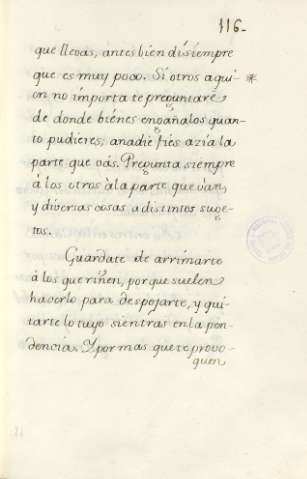 116.
que llevas, antes bien dísiempre
que es muy poco. Sí otros aquí-
on no ímporta te preguntare
de donde bíenes enoañalos quan-
to pudieres; anadie fies azía la
parte que vás. Pregunta siempre
á los otros àla parte que ván,
y diversas cosas a distintos suge-
tos.
Guardate de arrimarte
á los que riñen, porque suelen
hacerlo para despojarte, y qui-
tarte lo tuyo sientras en la pen-
dencia. Y por mas que te provo-
quen